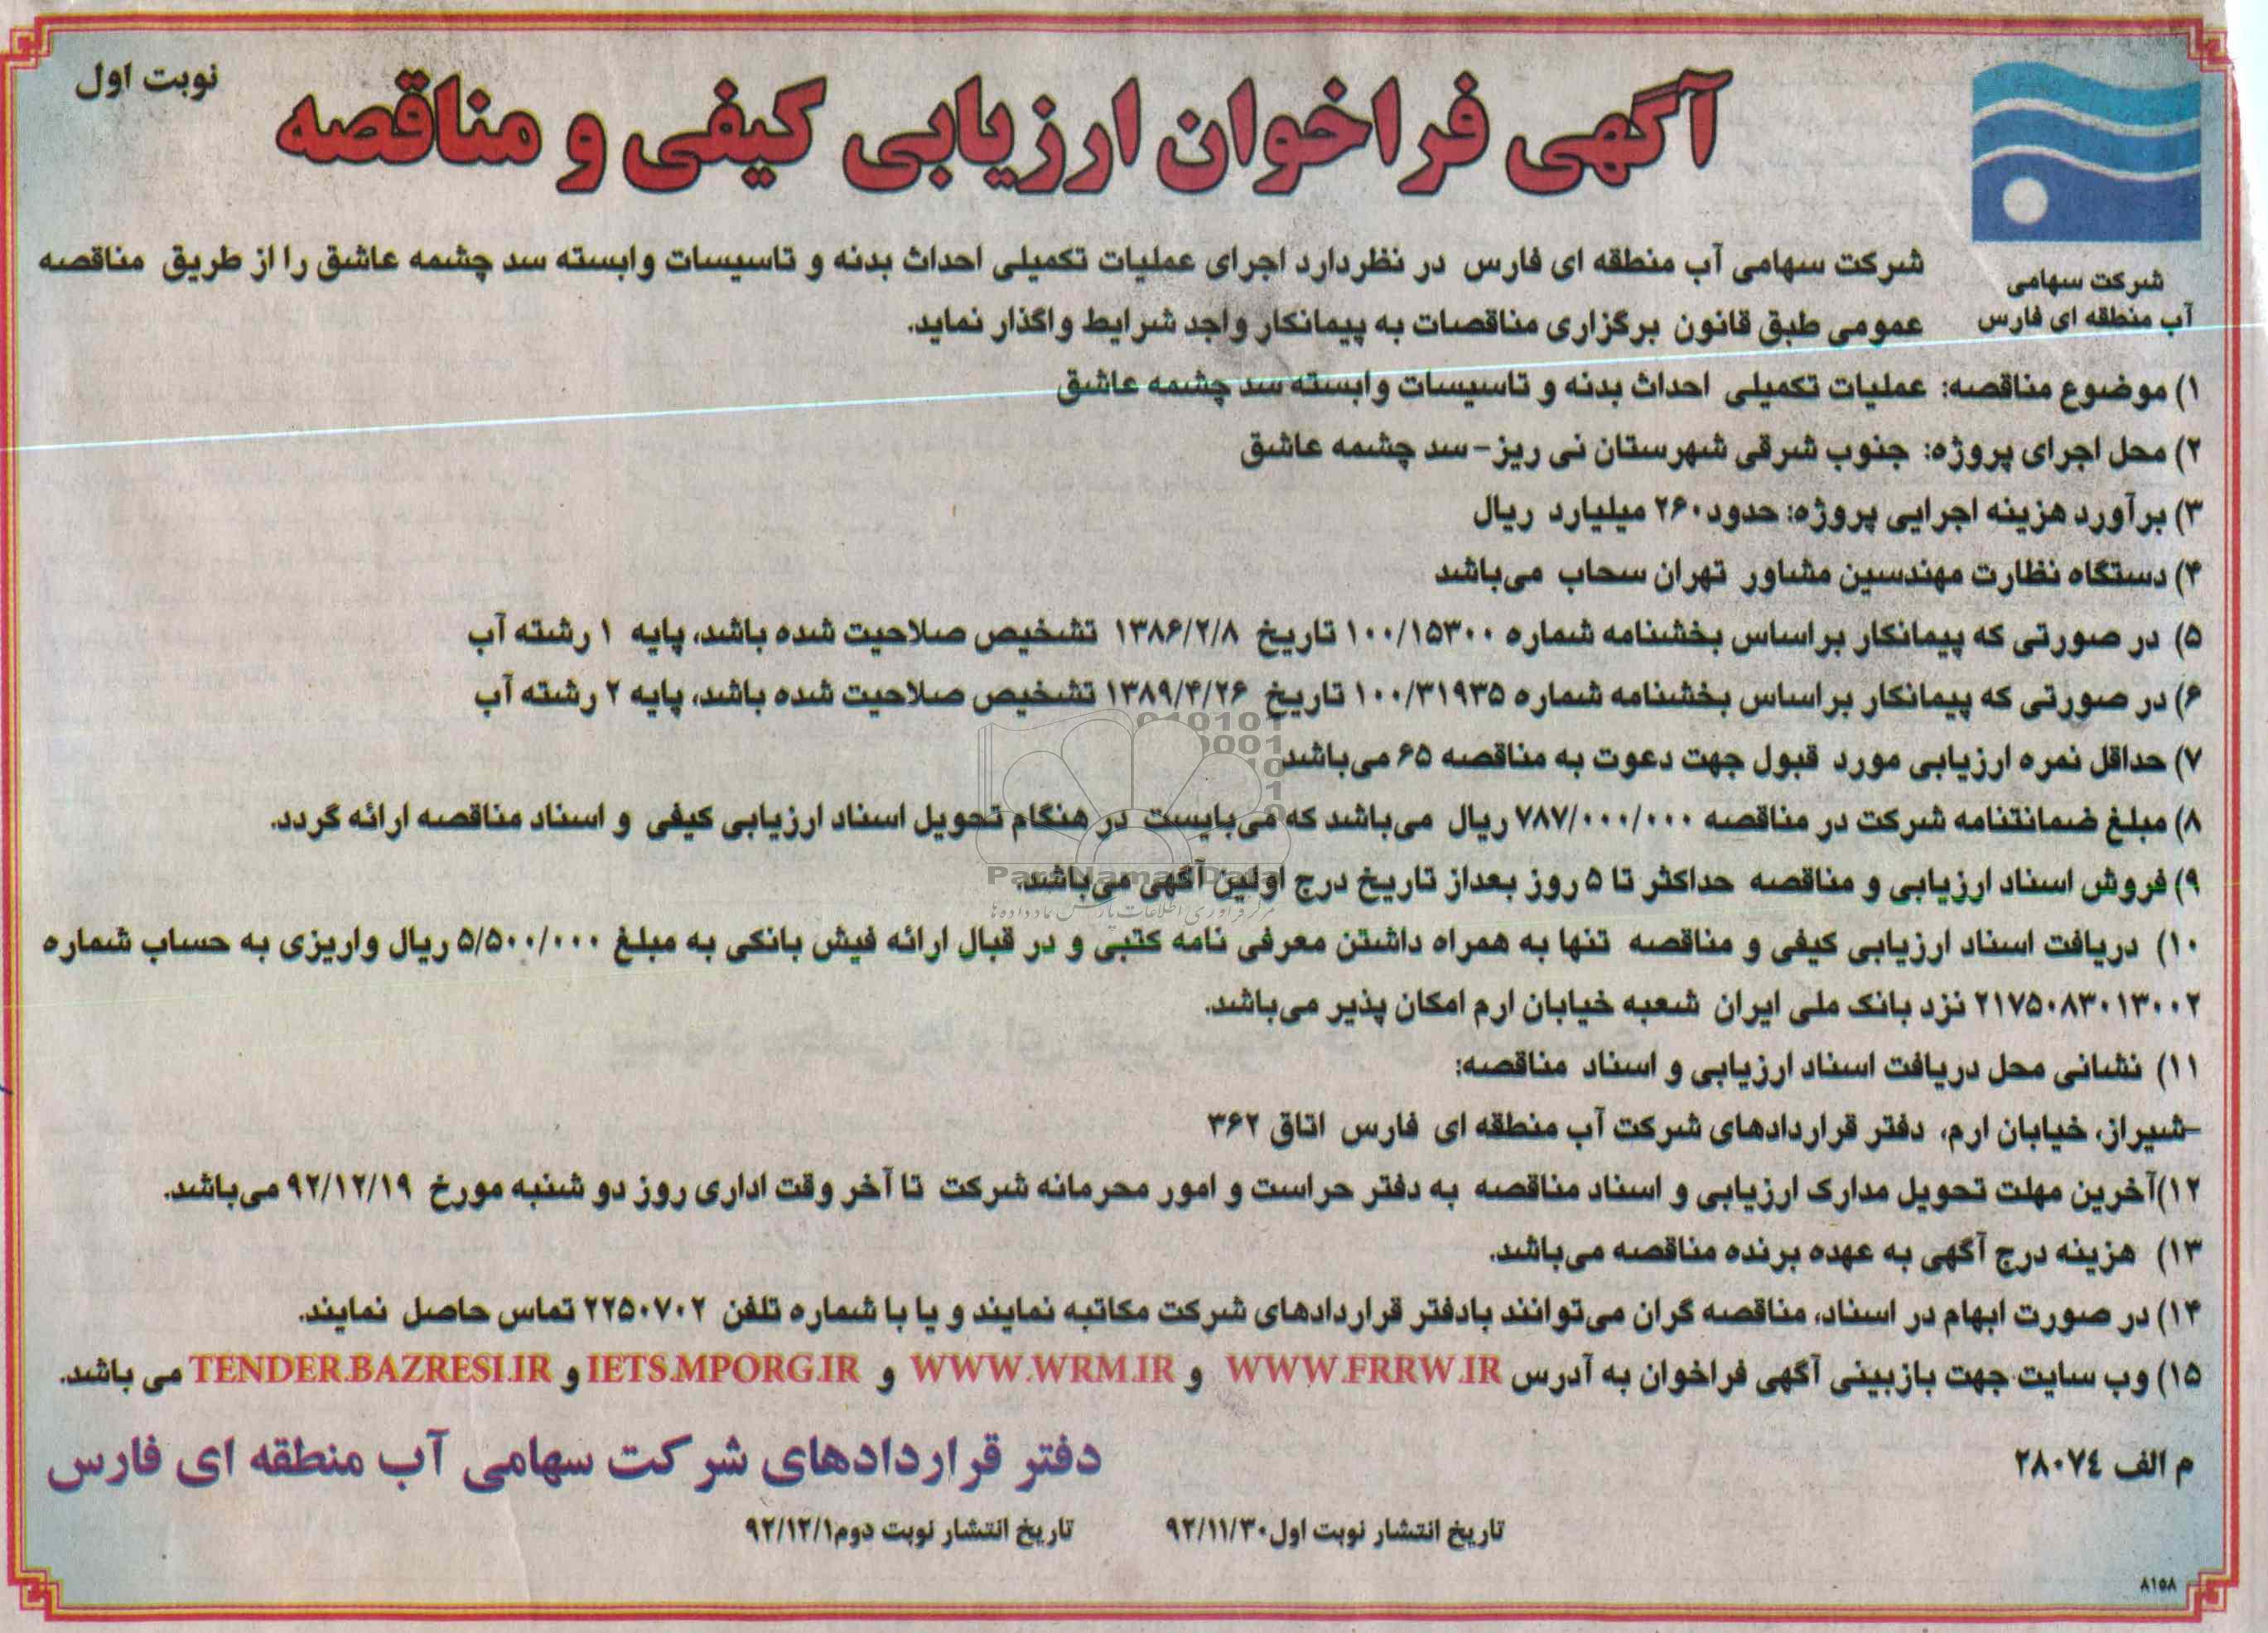 نوبت اول
آگهی فراخوان ارزیابی کیفی و مناقصه
شرکت سهامی
آب منطقه ای فارس
شرکت سهامی آب منطقه ای فارس در نظردارد اجرای عملیات تکمیلی احداث بدنه و تاسیسات وابسته سد چشمه عاشق را از طریق مناقصه
عمومی طبق قانون برگزاری مناقصات به پیمانکار واجد شرایط واگذار نماید.
۱) موضوع مناقصه: عملیات تکمیلی احداث بدنه و تاسیسات وابسته سد چشمه عاشق
۲) محل اجرای پروژه: جنوب شرقی شهرستان نی ریز- سد چشمه عاشق
۳) برآورد هزینه اجرایی پروژه: حدود۲۶۰ میلیارد ریال
۴) دستگاه نظارت مهندسین مشاور تهران سحاب می‌باشد
۵) در صورتی که پیمانکار براساس بخشنامه شماره ۱۰۰/۱۵۳۰۰ تاریخ ۱۳۸۶/۲/۸ تشخیص صلاحیت شده باشد، پایه ۱ رشته آب
۶) در صورتی که پیمانکار براساس بخشنامه شماره ۱۰۰/۳۱۹۳۵ تاریخ ۱۳۸۹/۴/۲۶ تشخیص صلاحیت شده باشد، پایه ۲ رشته آب
۷) حداقل نمره ارزیابی مورد قبول جهت دعوت به مناقصه ۶۵ می‌باشد
۸) مبلغ ضمانتنامه شرکت در مناقصه ۷۸۷/۰۰۰/۰۰۰ ریال می‌باشد که می‌بایست در هنگام تحویل اسناد ارزیابی کیفی و اسناد مناقصه ارائه گردد.
۹) فروش اسناد ارزیابی و مناقصه حداکثر تا ۵ روز بعداز تاریخ درج اولین آگهی می‌باشد.
Pars Namad Data
مرکز فرآوری اطلاعات پارس نماد داده ها
۱۰) دریافت اسناد ارزیابی کیفی و مناقصه تنها به همراه داشتن معرفی نامه کتبی و در قبال ارائه فیش بانکی به مبلغ ۵/۵۰۰/۰۰۰ ریال واریزی به حساب شماره
۲۱۷۵۰۸۳۰۱۳۰۰۲ نزد بانک ملی ایران شعبه خیابان ارم امکان پذیر می‌باشد.
۱۱) نشانی محل دریافت اسناد ارزیابی و اسناد مناقصه:
-شیراز، خیابان ارم، دفتر قراردادهای شرکت آب منطقه ای فارس اتاق ۳۶۲
۱۲)آخرین مهلت تحویل مدارک ارزیابی و اسناد مناقصه به دفتر حراست و امور محرمانه شرکت تا آخر وقت اداری روز دو شنبه مورخ ۹۲/۱۲/۱۹ می‌باشد.
۱۳) هزینه درج آگهی به عهده برنده مناقصه می‌باشد.
۱۴) در صورت ابهام در اسناد، مناقصه گران می‌توانند بادفتر قراردادهای شرکت مکاتبه نمایند و یا با شماره تلفن ۲۲۵۰۷۰۲ تماس حاصل نمایند.
۱۵) وب سایت جهت بازبینی آگهی فراخوان به آدرس WWW.FRRW.IR و WWW.WRM.IR و IETS.MPORG.IR و TENDER.BAZRESI.IR می باشد.
م الف ۲۸۰۷٤
دفتر قراردادهای شرکت سهامی آب منطقه ای فارس
تاریخ انتشار نوبت اول۹۲/۱۱/۳۰
تاریخ انتشار نوبت دوم۹۲/۱۲/۱
۸۱۵۸